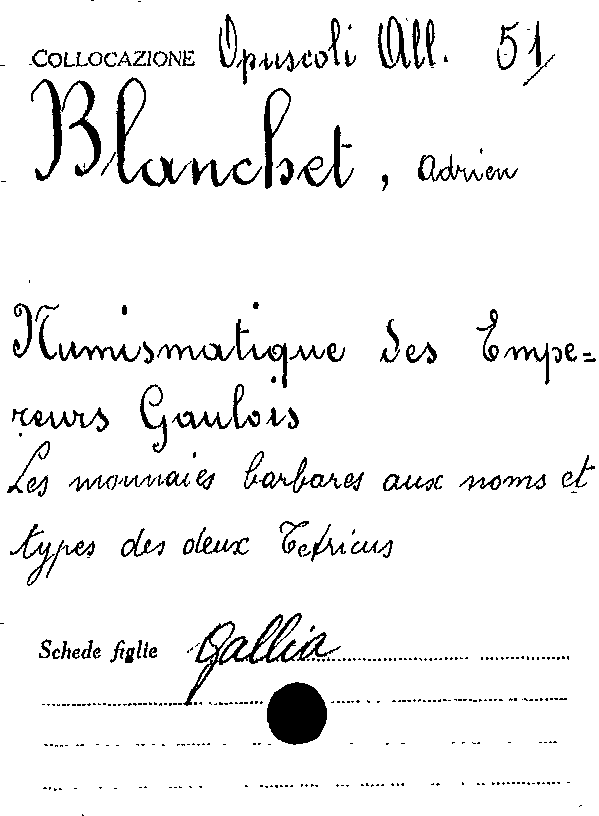 COLLOCAZIONE Opuscoli All. 51
Blanchet, Adrien
Numismatique des Empe=
reurs Gaulois
Les monnaies barbares aux noms et
types des deux Tetricus
Schede figlie Gallia